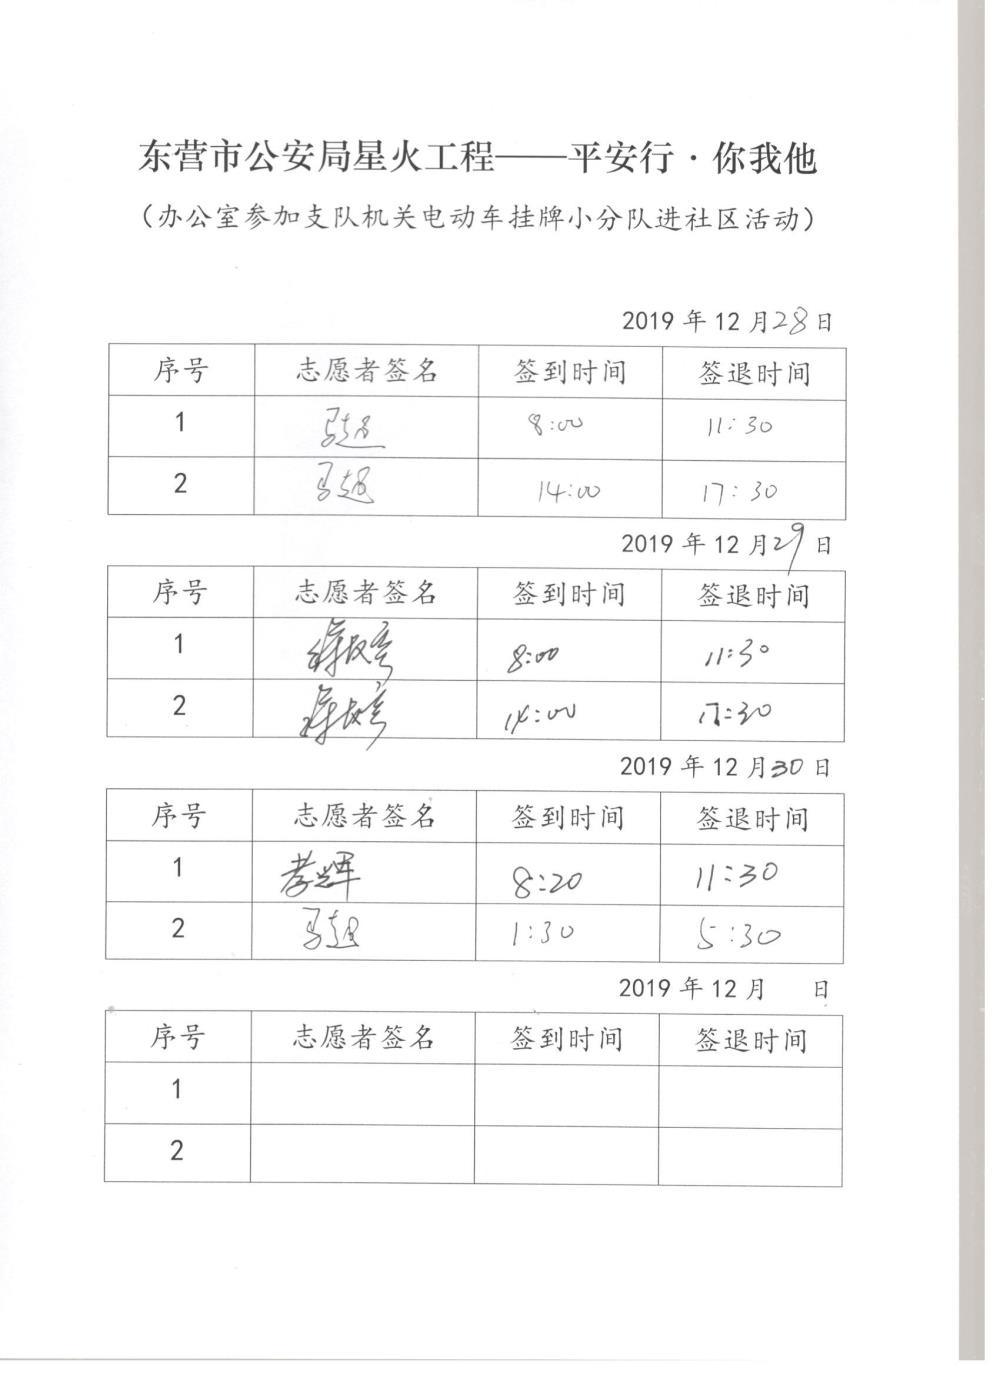 东营市公安局星火工程——平安行·你我他
（办公室参加支队机关电动车挂牌小分队进社区活动）
2019 年 12 月28日
序号 志愿者签名 签到时间 签退时间
1 马超 8:00 11:30
2 马超 14:00 17:30
2019 年 12 月29日
序号 志愿者签名 签到时间 签退时间
1 8:00 11:30
2 14:00 17:30
2019 年 12 月30日
序号 志愿者签名 签到时间 签退时间
1 8:20 11:30
2 马超 1:30 5:30
2019 年 12 月 日
序号 志愿者签名 签到时间 签退时间
1
2